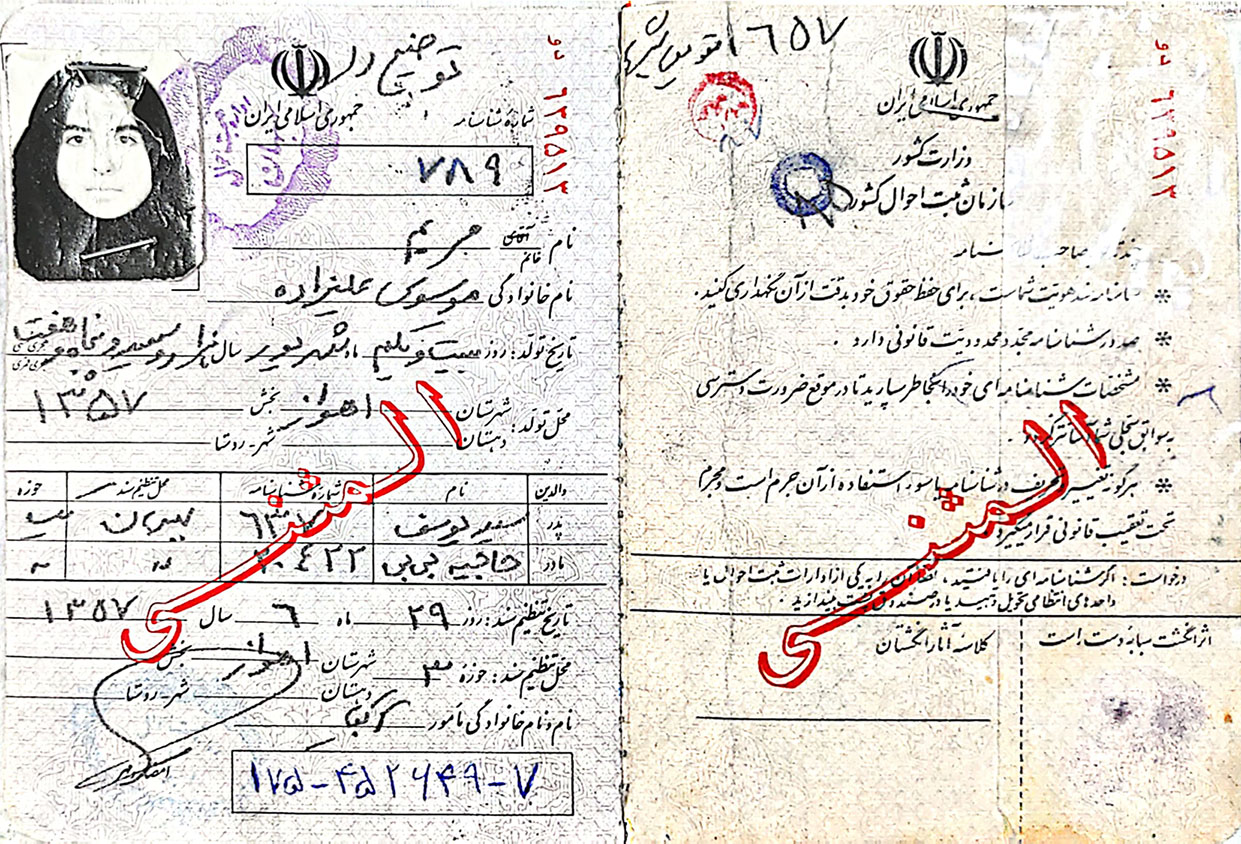 توضیح در
جمهوری اسلامی ایران
شماره شناسنامه
۷۸۹
نو ۶۲۹۵۱۲
نام آقای خانم مریم
نام خانوادگی موسوی علیزاده
تاریخ تولد: روز بیست و یکم ماه شهریور سال هزار و سیصد و پنجاه و هفت
۱۳۵۷
محل تولد: شهرستان اهواز بخش
دهستان شهر-روستا
والدین نام شماره شناسنامه محل تنظیم سند حوزه
پدر: سید یوسف
مادر: حاجیه بی بی
تاریخ تنظیم سند: روز ۲۹ ماه ۶ سال ۱۳۵۷
محل تنظیم سند: حوزه ۳ شهرستان اهواز بخش
دهستان شهر-روستا
نام و نام خانوادگی مأمور
۱۷۵-۴۵۲۶۴۹-۷
المثنی
۱۶۵۷
نو ۶۲۹۵۱۲
جمهوری اسلامی ایران
وزارت کشور
سازمان ثبت احوال کشور
چند تذکر به صاحب شناسنامه
* شناسنامه سند هویت شماست، برای حفظ حقوق خود بدقت از آن نگهداری کنید.
* صدور شناسنامه مجدد محدودیت قانونی دارد.
* مشخصات شناسنامه‌ای خود را بخاطر بسپارید تا در موقع ضرورت دسترسی
به سوابق سجلی شما آسانتر گردد.
* هرگونه تغییر و تحریف در شناسنامه یا سوء استفاده از آن جرم است و مجرم
تحت تعقیب قانونی قرار میگیرد.
درخواست: اگر شناسنامه‌ای را یافتید، لطفاً آن را به یکی از ادارات ثبت احوال یا
واحدهای انتظامی تحویل دهید یا در صندوق پست بیندازید.
اثر انگشت سبابه دست است
کلاسه آثار انگشتان
المثنی